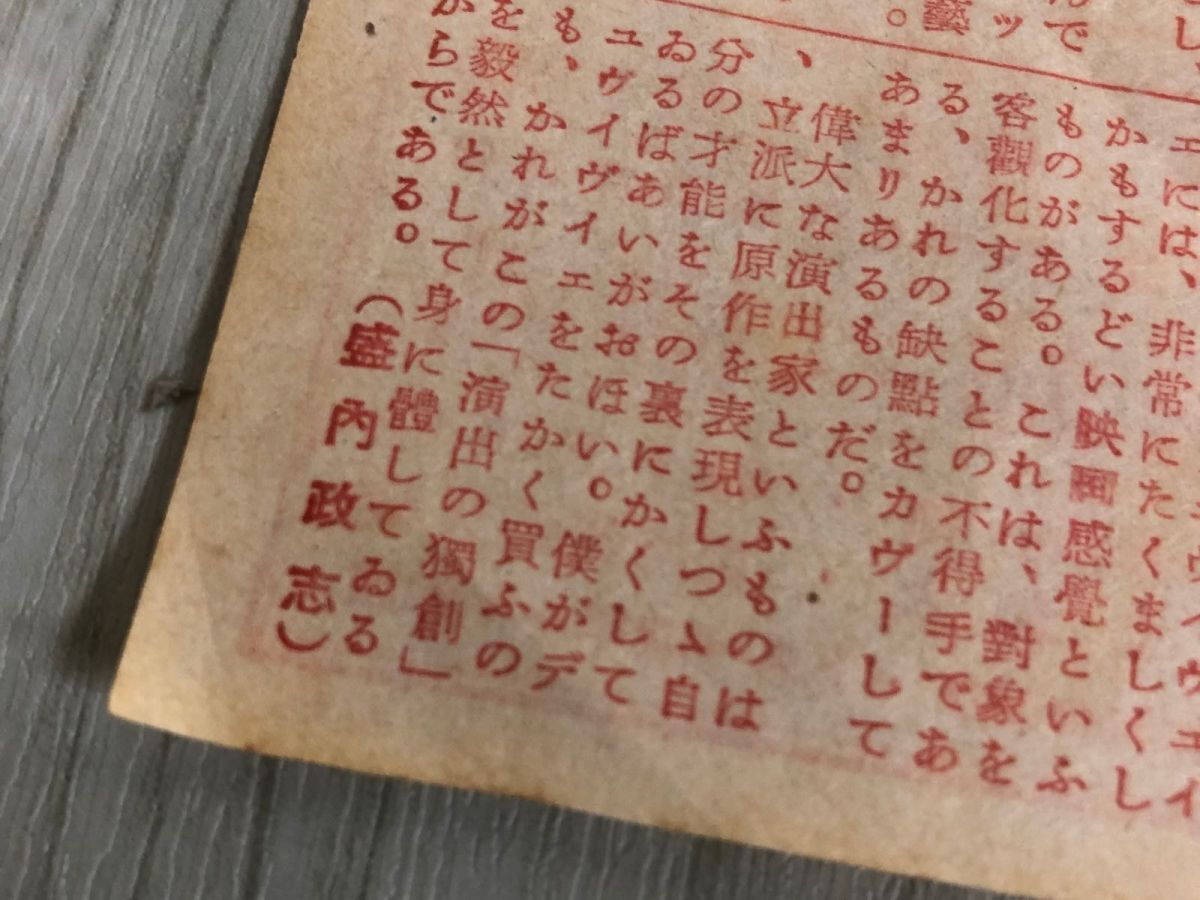 し、
んで
ッ
藝
。
エには、非常にたくましくし
かもするどい映画感覺といふ
ものがある。これは、對象を
客觀化することの不得手であ
る、かれの缺點をカヴーして
あまりあるものだ。
、偉大な演出家といふものは
立派に原作を表現しつゝ自
分の才能をその裏にかくして
ゐるばあいがおほい。僕がデ
ユヴイヴイエをたかく買ふの
も、かれがこの「演出の獨創」
を毅然として身に體してゐる
からである。
(盛內政志)